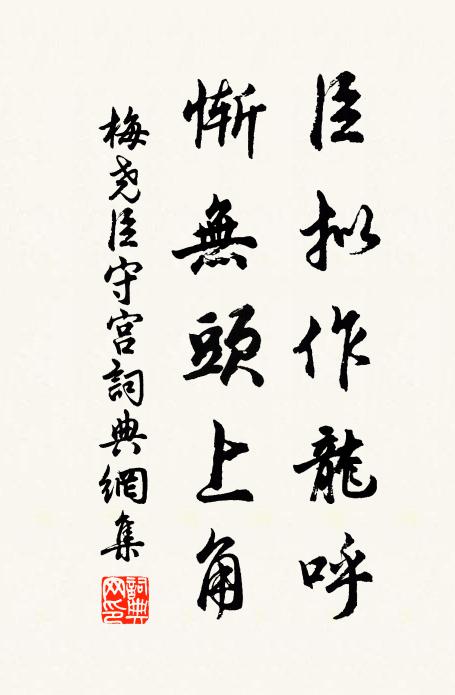 臣拟作龍呼
慚無頭上角
梅尧臣守宫詞典網集
詞典网印